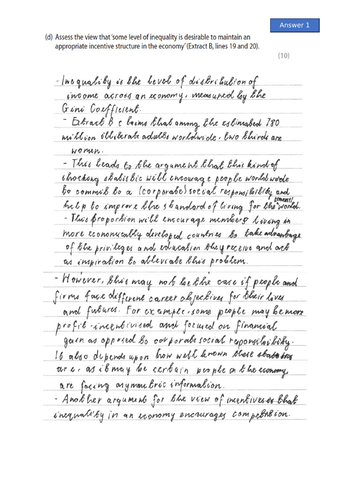 Answer 1
(d) Assess the view that 'some level of inequality is desirable to maintain an
appropriate incentive structure in the economy' (Extract B, lines 19 and 20).
(10)
- Inequality is the level of distribution of
income across an economy, measured by the
Gini Coefficient.
- Extract B claims that among the estimated 780
million illiterate adults worldwide, two thirds are
women.
- This leads to the argument that this kind of
shocking statistic will encourage people worldwide
to commit to a (corporate) social responsibility and
help to improve the standard of living for these women!
- This proportion will encourage members living in
more economically developed countries to take advantage
of the privileges and education they receive and act
as inspiration to alleviate this problem.
- However, this may not be the case if people and
firms face different career objectives for their lives
and futures. For example, some people may be more
profit-incentivised and focused on financial
gain as opposed to corporate social responsibility.
It also depends upon how well known these
are, as it may be certain people in the economy,
are facing asymmetric information.
- Another argument for the view of incentives is that
inequality in an economy encourages competition.